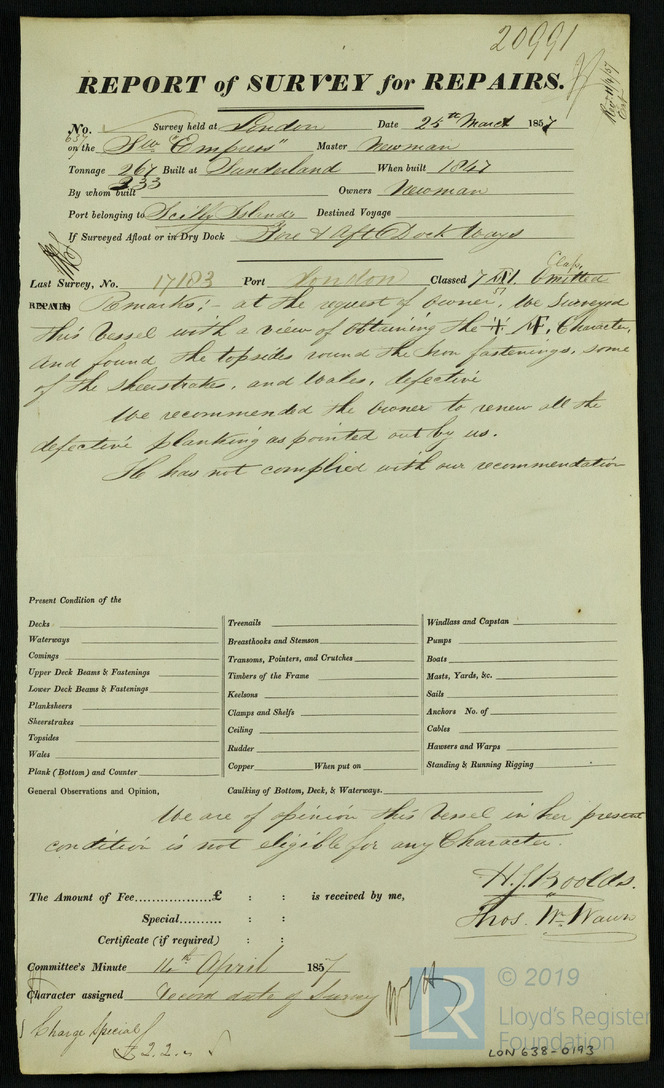 20991
REPORT of SURVEY for REPAIRS.
No. Survey held at London Date 25th March 1857
637 on the Sw "Empress" Master Newman
Tonnage 267 Built at Sunderland When built 1847
233
By whom built Owners Newman
Port belonging to Scilly Islands Destined Voyage
If Surveyed Afloat or in Dry Dock Fore & Aft Dock Ways
Last Survey, No. 17183 Port London Classed 7 A1. Class Omitted
57
REPAIRS Remarks:- at the request of Owner, We Surveyed
this Vessel with a view of obtaining the Æ, Character,
and found the topsides round the Iron fastenings, some
of the sheerstrakes, and Wales, defective
We recommended the Owner to renew all the
defective planking as pointed out by us.
He has not complied with our recommendation
Present Condition of the
Decks
Waterways
Comings
Upper Deck Beams & Fastenings
Lower Deck Beams & Fastenings
Planksheers
Sheerstrakes
Topsides
Wales
Plank (Bottom) and Counter
Treenails
Breasthooks and Stemson
Transoms, Pointers, and Crutches
Timbers of the Frame
Keelsons
Clamps and Shelfs
Ceiling
Rudder
Copper When put on
Windlass and Capstan
Pumps
Boats
Masts, Yards, &c.
Sails
Anchors No. of
Cables
Hawsers and Warps
Standing & Running Rigging
General Observations and Opinion, Caulking of Bottom, Deck, & Waterways.
We are of opinion this Vessel in her present
condition is not eligible for any Character.
H. J. Boolds.
Thos. Wm. Wawn
The Amount of Fee..................£ : : is received by me,
Special.......... : :
Certificate (if required) : :
Committee's Minute 14th April 1857
Character assigned Record date of Survey
Charge Special
£2.2.
© 2019
LR
Lloyd's Register
Foundation
LON 638-0193